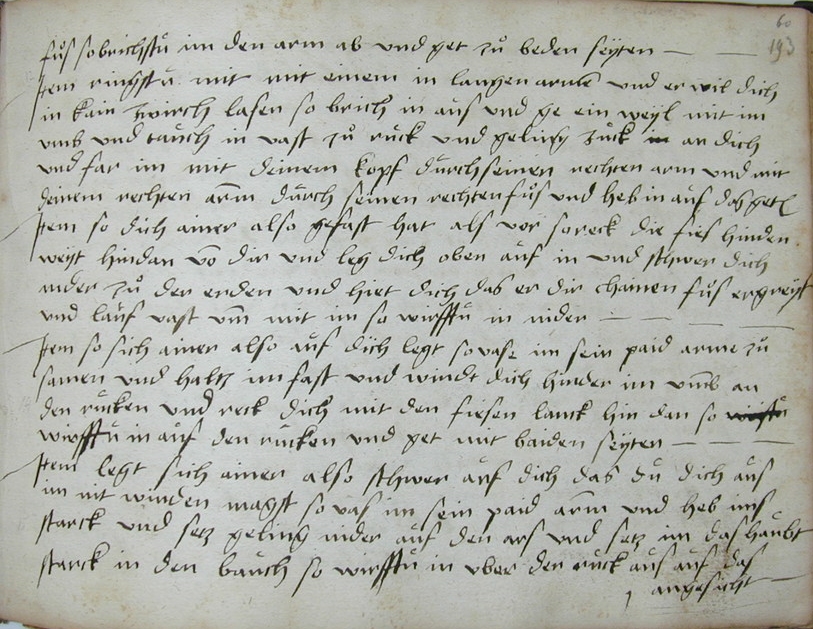 60
193
fus so brichstu im den arm ab und get zu beden seyten
Item ringstu mit mit einem in langen armen und er wil dich
in kain zwirch lasen so brich in aus und ge ein weyl mit im
umb und tauch in vast zu ruck und geling zuck in an dich
und far im mit deinem kopf durch seinen rechten arm und mit
deinem rechten arm durch seinen rechten fus und heb in auf das get
Item so dich ainer also gefast hat als vor so reck die fies hinden
weyt hindan von dir und leg dich oben auf in und schwer dich
nider zu der erden und hiet dich das er dir chainen fus ergreyf
und lauf vast um mit im so wirfftu in nider
Item so sich ainer also auf dich legt so vase im sein paid arme zu
samen und haltz im fast und windt dich hinder im umb an
den rucken und reck dich mit den fiesen lanck hin dan so
wirfftu in auf den rucken und get mit baiden seyten
Item legt sich ainer also schwer auf dich das du dich aus
im nit winden magst so vas im sein paid arm und heb ims
starck und setz geling nider auf den ars und setz im das haubt
starck in den bauch so wirfftu in uber den ruck aus auf das
angesicht